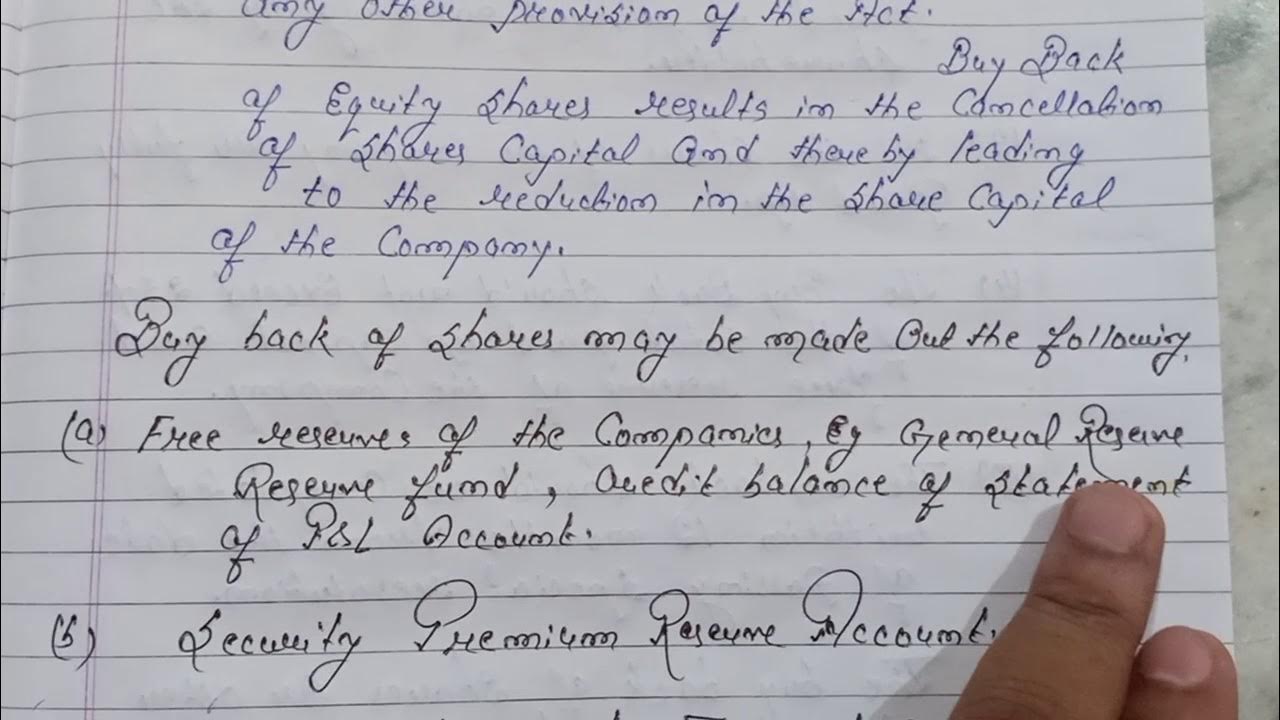 any other provision of the Act.
Buy Back
of Equity Shares results in the Cancellation
of Shares Capital and there by leading
to the reduction in the Share Capital
of the Company.
Buy back of Shares may be made Out the following,
(a) Free reserves of the Companies, Eg General Reserve
Reserve fund, Credit balance of Statement
of P&L Account.
(b) Security Premium Reserve Account.